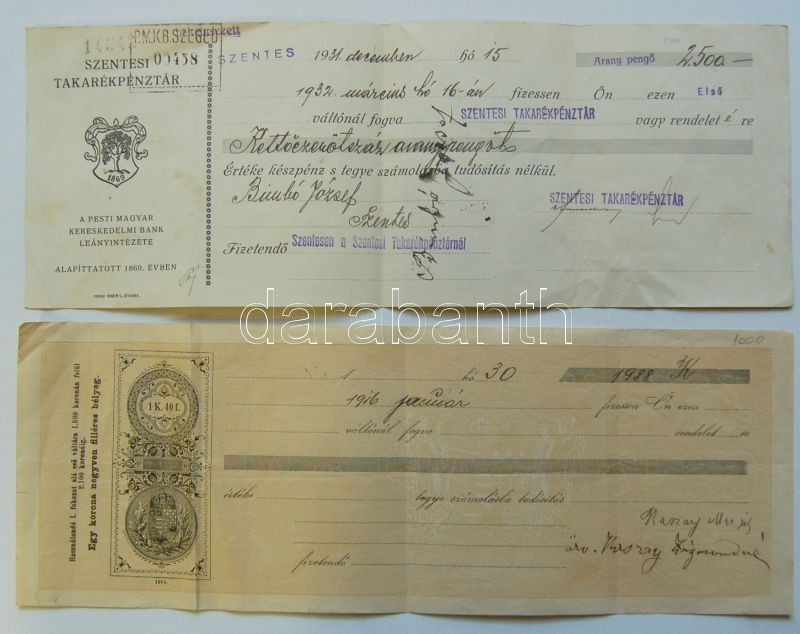 P.M.K.B. SZEGED
00458
SZENTESI
TAKARÉKPÉNZTÁR
1869
A PESTI MAGYAR
KERESKEDELMI BANK
LEÁNYINTÉZETE
ALAPÍTTATOTT 1869. ÉVBEN
SZENTES 1931. december hó 15 Arany pengő 2.500—
1932. március hó 16-án fizessen Ön ezen Első
váltónál fogva SZENTESI TAKARÉKPÉNZTÁR vagy rendelet é re
Kettőezerötszáz aranypengőt
Értéke készpénz s tegye számolásba tudósítás nélkül.
Bimbó József
Szentes
SZENTESI TAKARÉKPÉNZTÁR
Fizetendő Szentesen a Szentesi Takarékpénztárnál
Bimbó József
darabanth
1000
Használandó I. fokozat alá eső váltóra 1.800 koronán felül
2.100 koronáig.
Egy korona negyven filléres bélyeg.
1 K. 40 f.
1914.
1 hó 30 1988 K
1916 január fizessen Ön ezen
váltónál fogva rendelet re
értéke tegye számolásba tudósítás
fizetendő
özv. Kaszay Zsigmondné